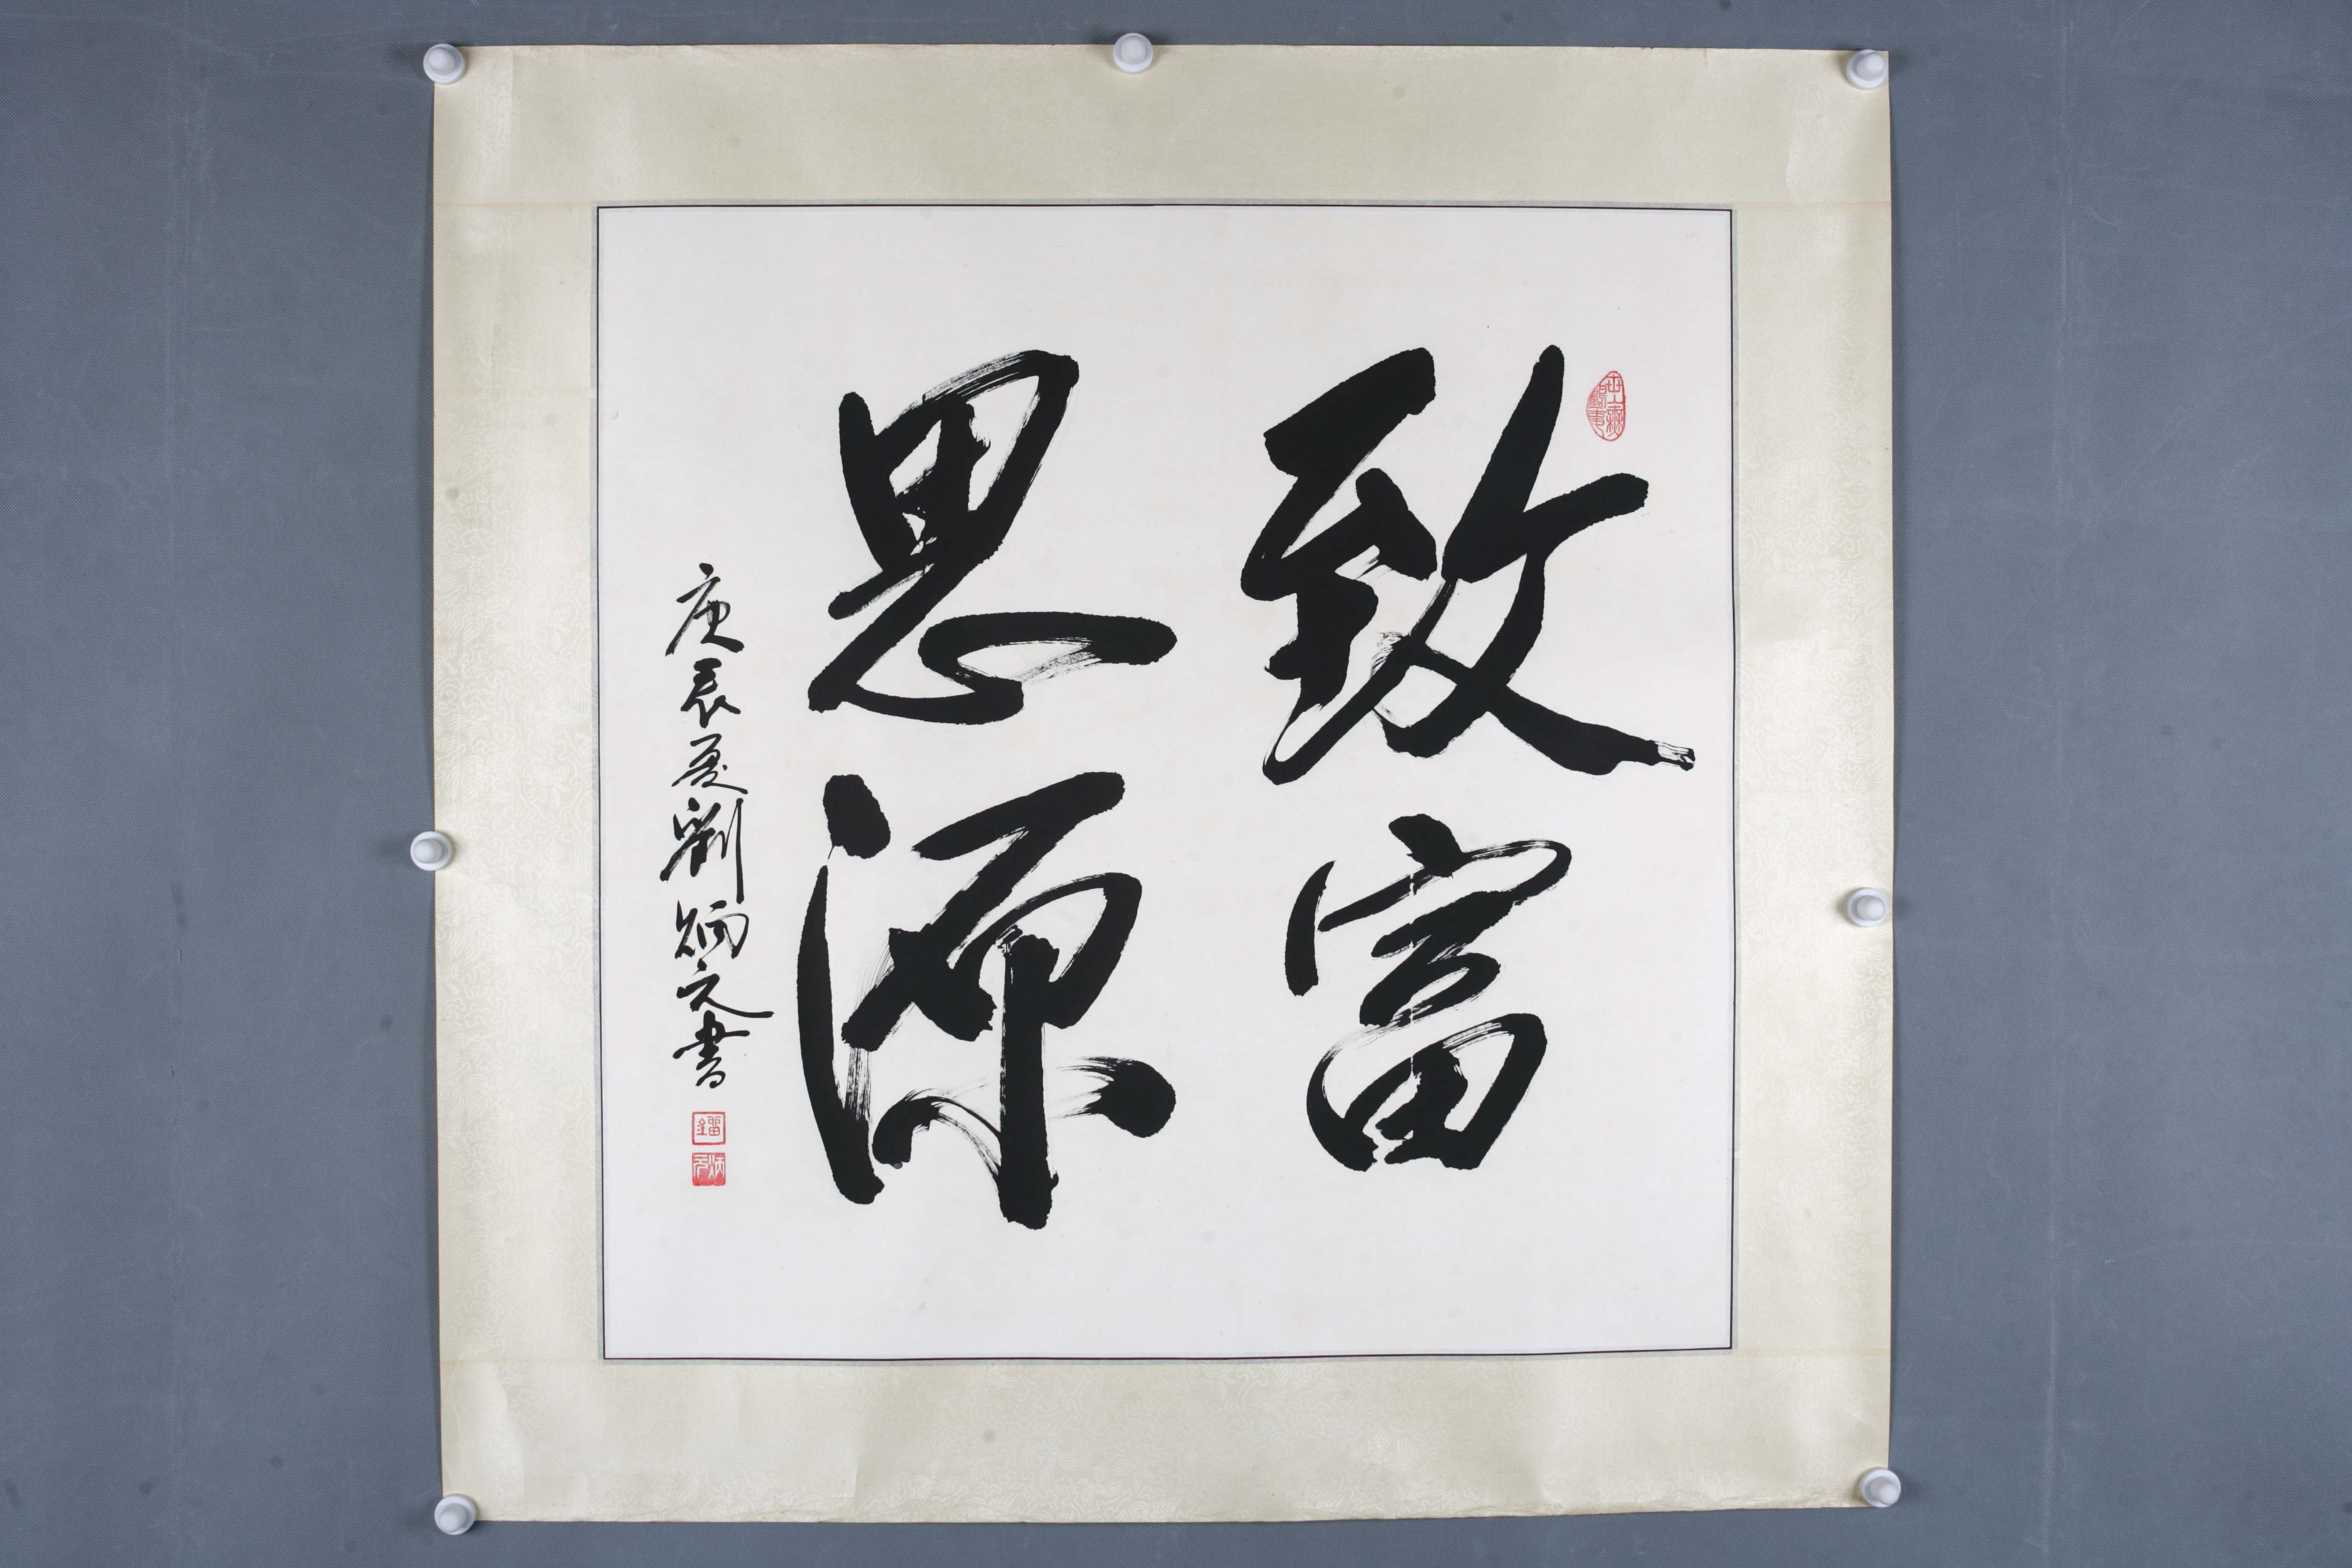 致富
思源
庚辰夏劉炳文書